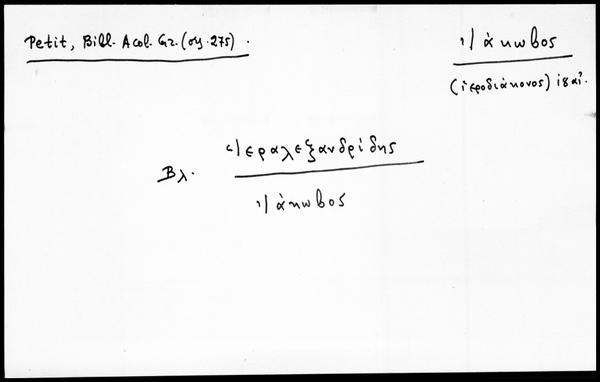 Petit, Bibl. Acol. Gr. (σχ. 275).
Ἰάκωβος
(ἱεροδιάκονος) ιθ΄ αἰ.
Ἱεραλεξανδρίδης
Βλ.
Ἰάκωβος